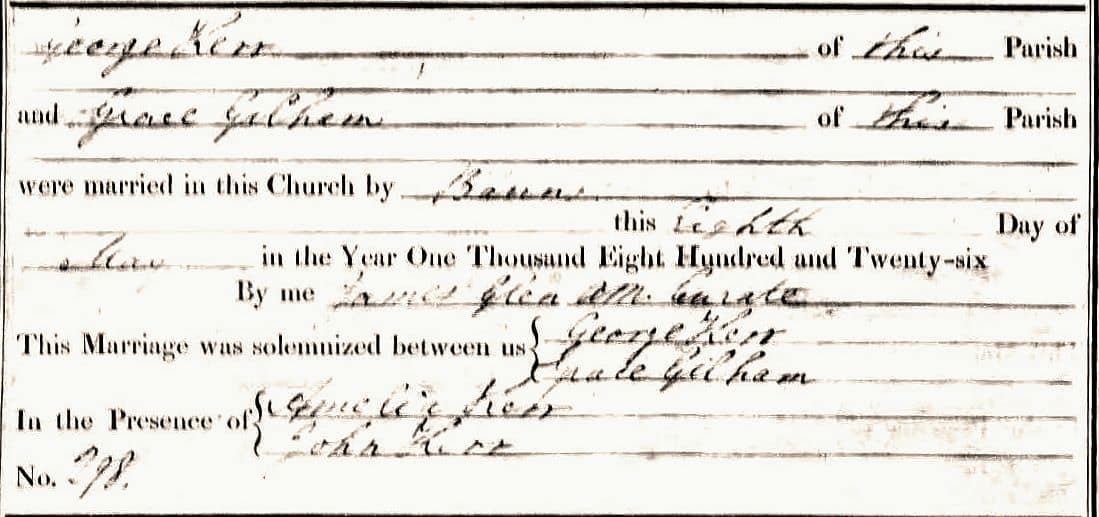 George Kerr of this Parish
and Grace Gilham of this Parish
were married in this Church by Banns
this Eighth Day of
May in the Year One Thousand Eight Hundred and Twenty-six
By me James Glen AM. Curate
This Marriage was solemnized between us { George Kerr
Grace Gilham
In the Presence of { Amelia Kerr
John Kerr
No. 298.